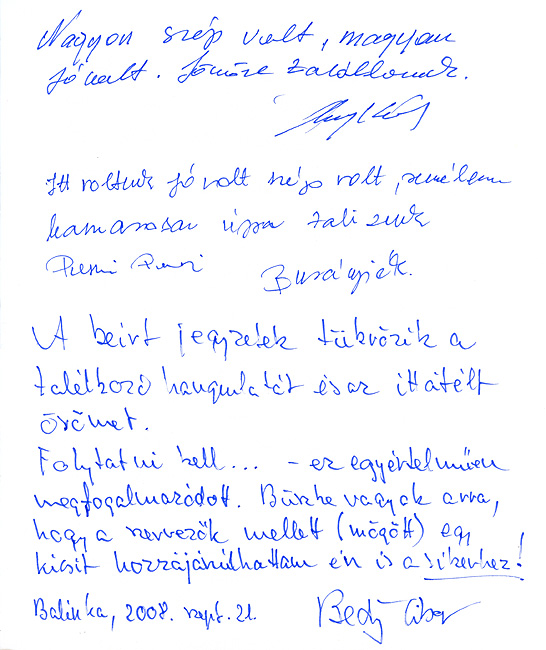 Nagyon szép volt, nagyon
jó volt. Jövőre találkozunk.
Itt voltunk jó volt szép volt, remélem
hamarosan újra
Buságyiék.
A beírt jegyzetek tükrözik a
találkozó hangulatát és az itt átélt
örömet.
Folytatni kell... - ez egyértelműen
megfogalmazódott. Büszke vagyok arra,
hogy a szervezők mellett (mögött) egy
kicsit hozzájárulhattam én is a sikerhez!
Balinka, 2008. szept. 21. Bedy Tibor